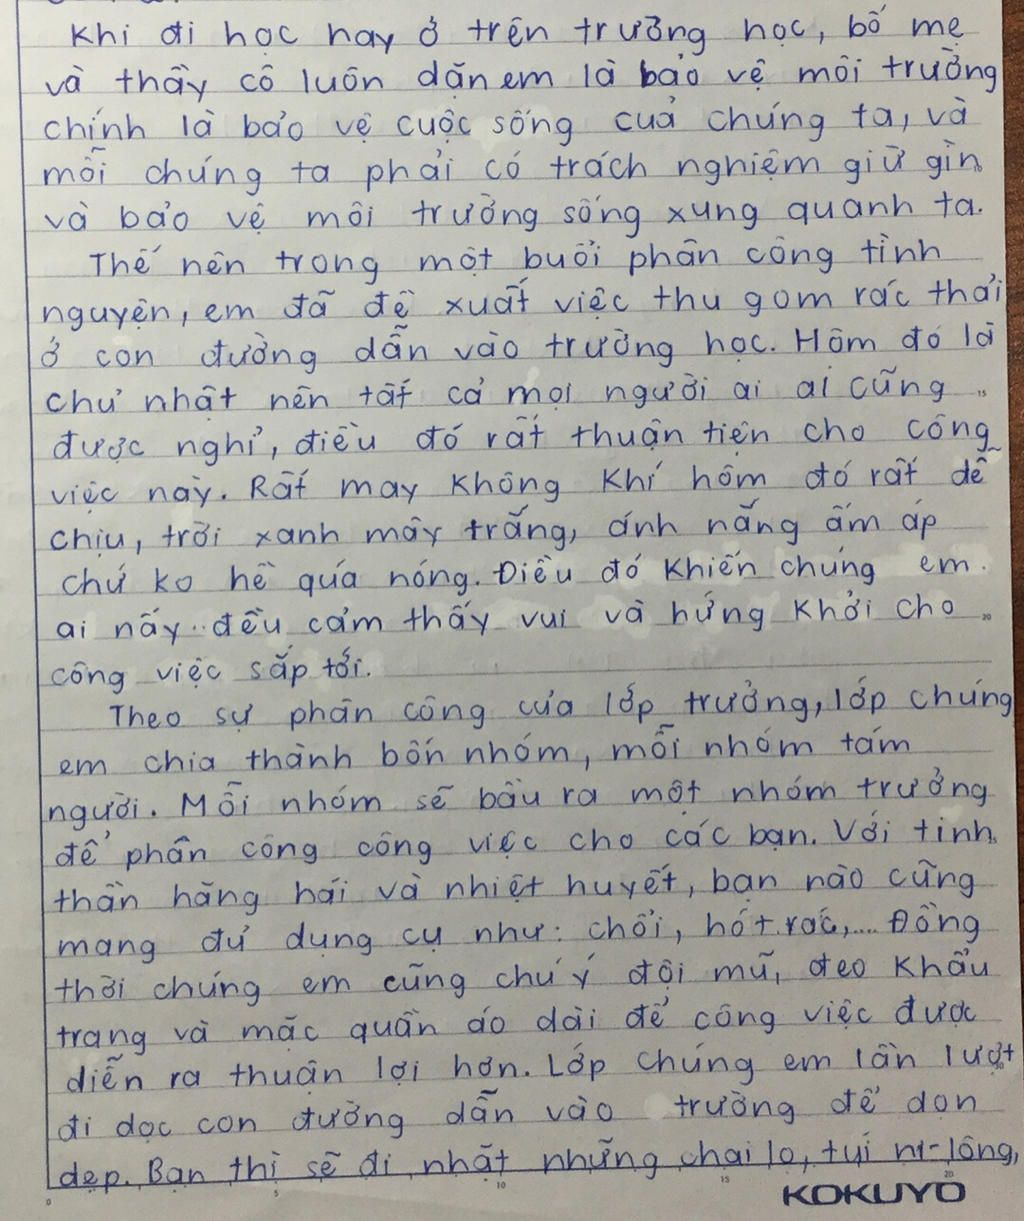 Khi đi học hay ở trên trường học, bố mẹ
và thầy cô luôn dặn em là bảo vệ môi trường
chính là bảo vệ cuộc sống cuả chúng ta, và
mỗi chúng ta phải có trách nghiệm giữ gìn
và bảo vệ môi trường sống xung quanh ta.
Thế nên trong một buổi phân công tình
nguyện, em đã đề xuất việc thu gom rác thải
ở con đường dẫn vào trường học. Hôm đó là
chủ nhật nên tất cả mọi người ai ai cũng
được nghỉ, điều đó rất thuận tiện cho công
việc này. Rất may không khí hôm đó rất dễ
chịu, trời xanh mây trắng, ánh nắng ấm áp
chứ ko hề quá nóng. Điều đó khiến chúng em
ai nấy đều cảm thấy vui và hứng khởi cho
công việc sắp tới.
Theo sự phân công của lớp trưởng, lớp chúng
em chia thành bốn nhóm, mỗi nhóm tám
người. Mỗi nhóm sẽ bầu ra một nhóm trưởng
để phân công công việc cho các bạn. Với tinh
thần hăng hái và nhiệt huyết, bạn nào cũng
mang đủ dụng cụ như: chổi, hót rác,.... Đồng
thời chúng em cũng chú ý đội mũ, đeo khẩu
trang và mặc quần áo dài để công việc được
diễn ra thuận lợi hơn. Lớp chúng em lần lượt
đi dọc con đường dẫn vào trường để dọn
dẹp. Bạn thì sẽ đi nhặt những chai lọ, túi ni-lông,
0 5 10 15 20
KOKUYO